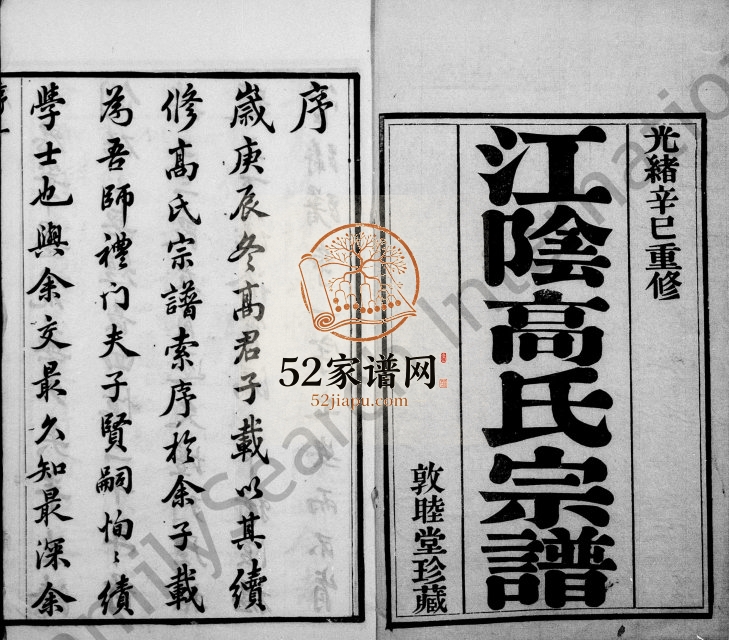 光緒辛巳重修
江陰高氏宗譜
敦睦堂珍藏
序
歲庚辰冬高君子載以其續
修高氏宗譜索序於余子載
為吾師禮门夫子賢嗣恂〻績
學士也與余交最久知最深余
序一
52家谱网
52jiapu.com
FamilySearch International